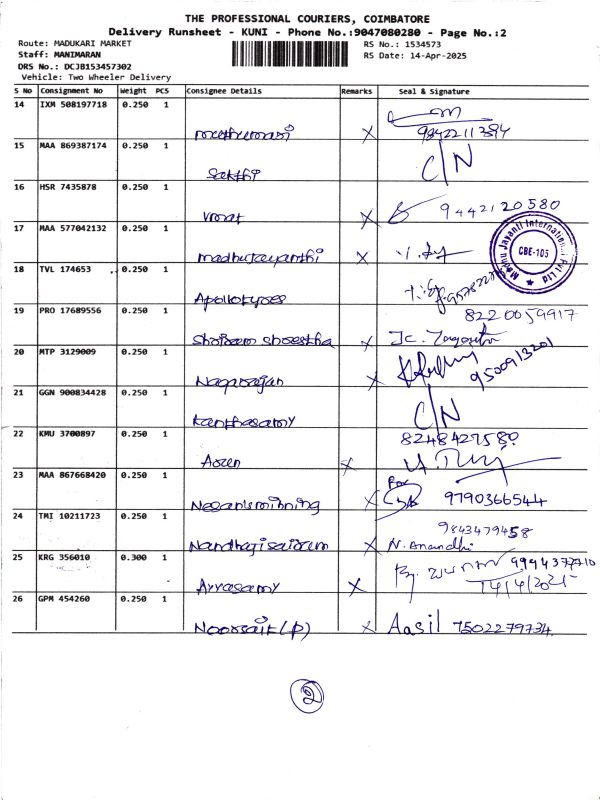 THE PROFESSIONAL COURIERS, COIMBATORE
Delivery Runsheet - KUNI - Phone No.:9047080280 - Page No.:2
Route: MADUKARI MARKET
RS No.: 1534573
Staff: MANIMARAN
RS Date: 14-Apr-2025
DRS No.: DCJB153457302
Vehicle: Two Wheeler Delivery
S No Consignment No Weight PCS Consignee Details Remarks Seal & Signature
14 IXM 508197718 0.250 1
X 9842211384
15 MAA 869387174 0.250 1
Sakthi C/N
16 HSR 7435878 0.250 1
X 9442120580
17 MAA 577042132 0.250 1
madhujayanthi X
Madhu Jayanti International Pvt Ltd
CBE-105
18 TVL 174653 0.250 1
Apollotyres
19 PRO 17689556 0.250 1
8220059917
X
20 MTP 3129009 0.250 1
Nagarajan X 9500913201
21 GGN 900834428 0.250 1
Kanthasamy C/N
22 KMU 3700897 0.250 1
X
23 MAA 867668420 0.250 1
X For 9790366544
24 TMI 10211723 0.250 1
9843479458
X N. Anandhi
25 KRG 356010 0.300 1
Ayyasamy X
14/4/2025
26 GPM 454260 0.250 1
Noorsait(P) X Aasil 7502279734
2